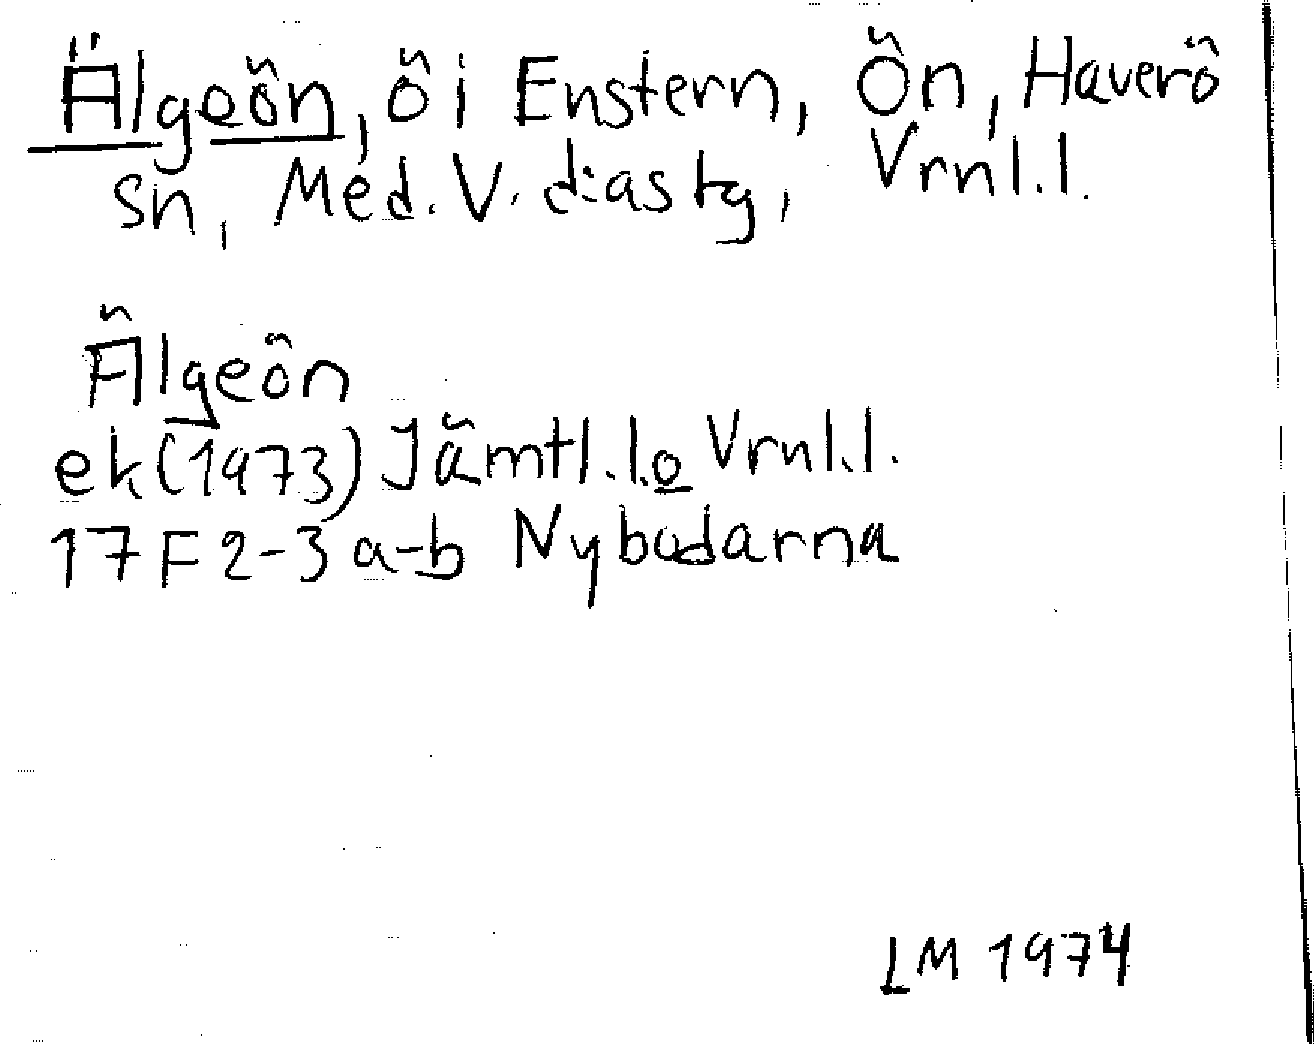 Älgeön, ö i Enstern, Ön, Haverö
sn, Med. V. d:as tg, Vrnl.l.
Älgeön
ek (1973) Jämtl.l. o Vrnl.l.
17 F 2-3 a-b Nybodarna
LM 1974